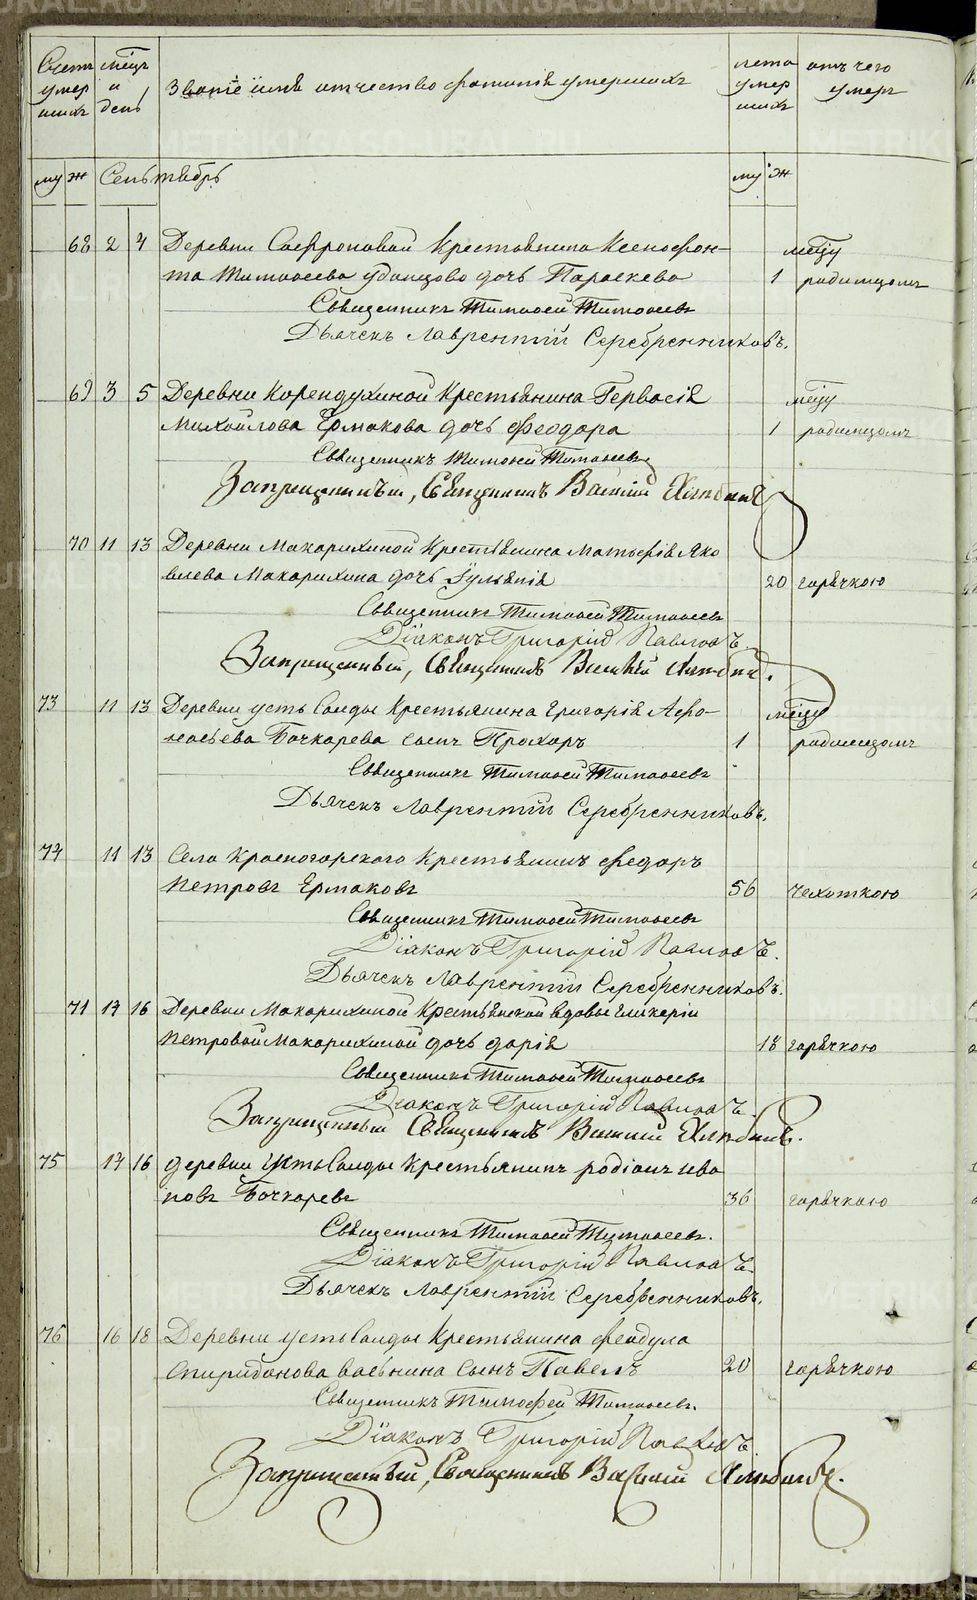 Счетъ умер шихъ | мѣцъ и день | Званіе имя отчество фамилія умершихъ | лета умер шихъ | отъ чего умеръ
му | ж | Сеньтябрь | му | ж
68 2 4 Деревни Сафроновой Крестьянина Ксенофон- мѣцу
та Тимофеева Удинцова дочь Параскева 1 родимцомъ
Священникъ Тимофей Тимофеевъ
Дьячекъ Лаврентій Серебренниковъ.
69 3 5 Деревни Корендухиной Крестьянина Гервасія мѣцу
Михайлова Ермакова дочь Феодора 1 родимцомъ
Священникъ Тимофей Тимофеевъ
Запрещенный, Священникъ Василій
70 11 13 Деревни Макарихиной Крестьянина Матьфія Яко
влева Макарихина дочь Іульянія 20 горячкою
Священникъ Тимофей Тимофеевъ
Діаконъ Григорій Павловъ.
Запрещенный, Священникъ Василій
73 11 13 Деревни усть Салды Крестьянина Григорія Афо- мѣцу
насьева Бочкарева сынъ Прохоръ 1 родимцомъ
Священникъ Тимофей Тимофеевъ
Дьячекъ Лаврентій Серебренниковъ.
74 11 13 Села Красногорскаго Крестьянинъ Федоръ
Петровъ Ермаковъ 56 чехоткою
Священникъ Тимофей Тимофеевъ
Діаконъ Григорій Павловъ.
Дьячекъ Лаврентій Серебренниковъ.
71 14 16 Деревни Макарихиной Крестьянской вдовы Гликеріи
Петровой Макарихиной дочь Дарія 18 горячкою
Священникъ Тимофей Тимофеевъ
Діаконъ Григорій Павловъ.
Запрещенный Священникъ Василій
75 14 16 Деревни Усть Салды Крестьянинъ Родіонъ Ива
новъ Бочкаревъ 36 горячкою
Священникъ Тимофей Тимофеевъ.
Діаконъ Григорій Павловъ.
Дьячекъ Лаврентій Серебренниковъ.
76 16 18 Деревни усть Салды Крестьянина Феодула
Спиридонова сынъ Павелъ 20 горячкою
Священникъ Тимофей Тимофеевъ.
Діаконъ Григорій Павловъ.
Запрещенный, Священникъ Василій
METRIKI.GASO-URAL.RU